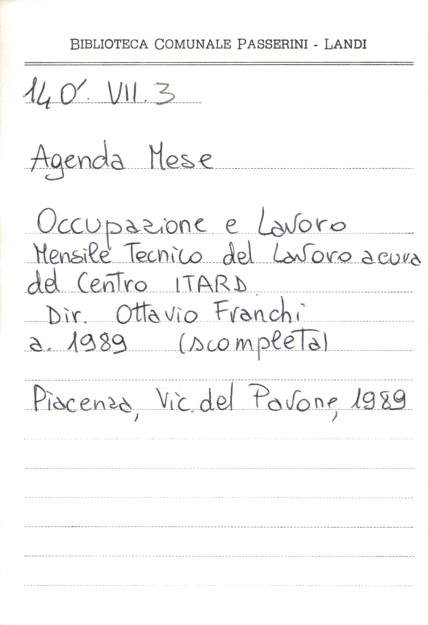 BIBLIOTECA COMUNALE PASSERINI - LANDI
140'. VII. 3
Agenda Mese
Occupazione e Lavoro
Mensile Tecnico del Lavoro a cura
del Centro ITARD
Dir. Ottavio Franchi
a. 1989 (scompleta)
Piacenza, Vic. del Pavone, 1989